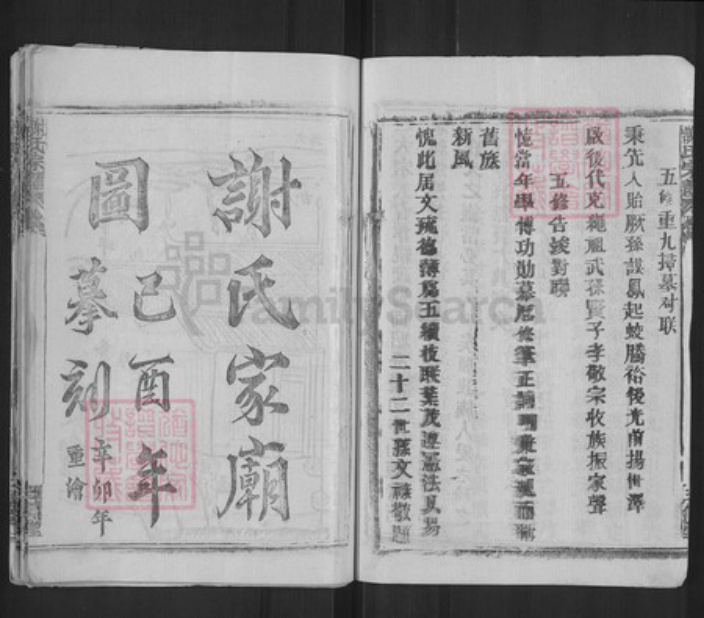 五修重九掛墓对联
秉先人貽厥孫謀鳳起蛟騰裕後光前揚世澤
啟後代克繩祖武孫賢子孝敬宗收族振家聲
五修告竣對聯
憶當年學博功勛慕尼修筆正
舊族
愧此居文疏德薄篇五續枝联葉茂遵憲法以揚
新風
二十二世孫文 敬題
謝氏家廟
圖
己酉年
摹刻
辛卯年
重繪
FamilySearch